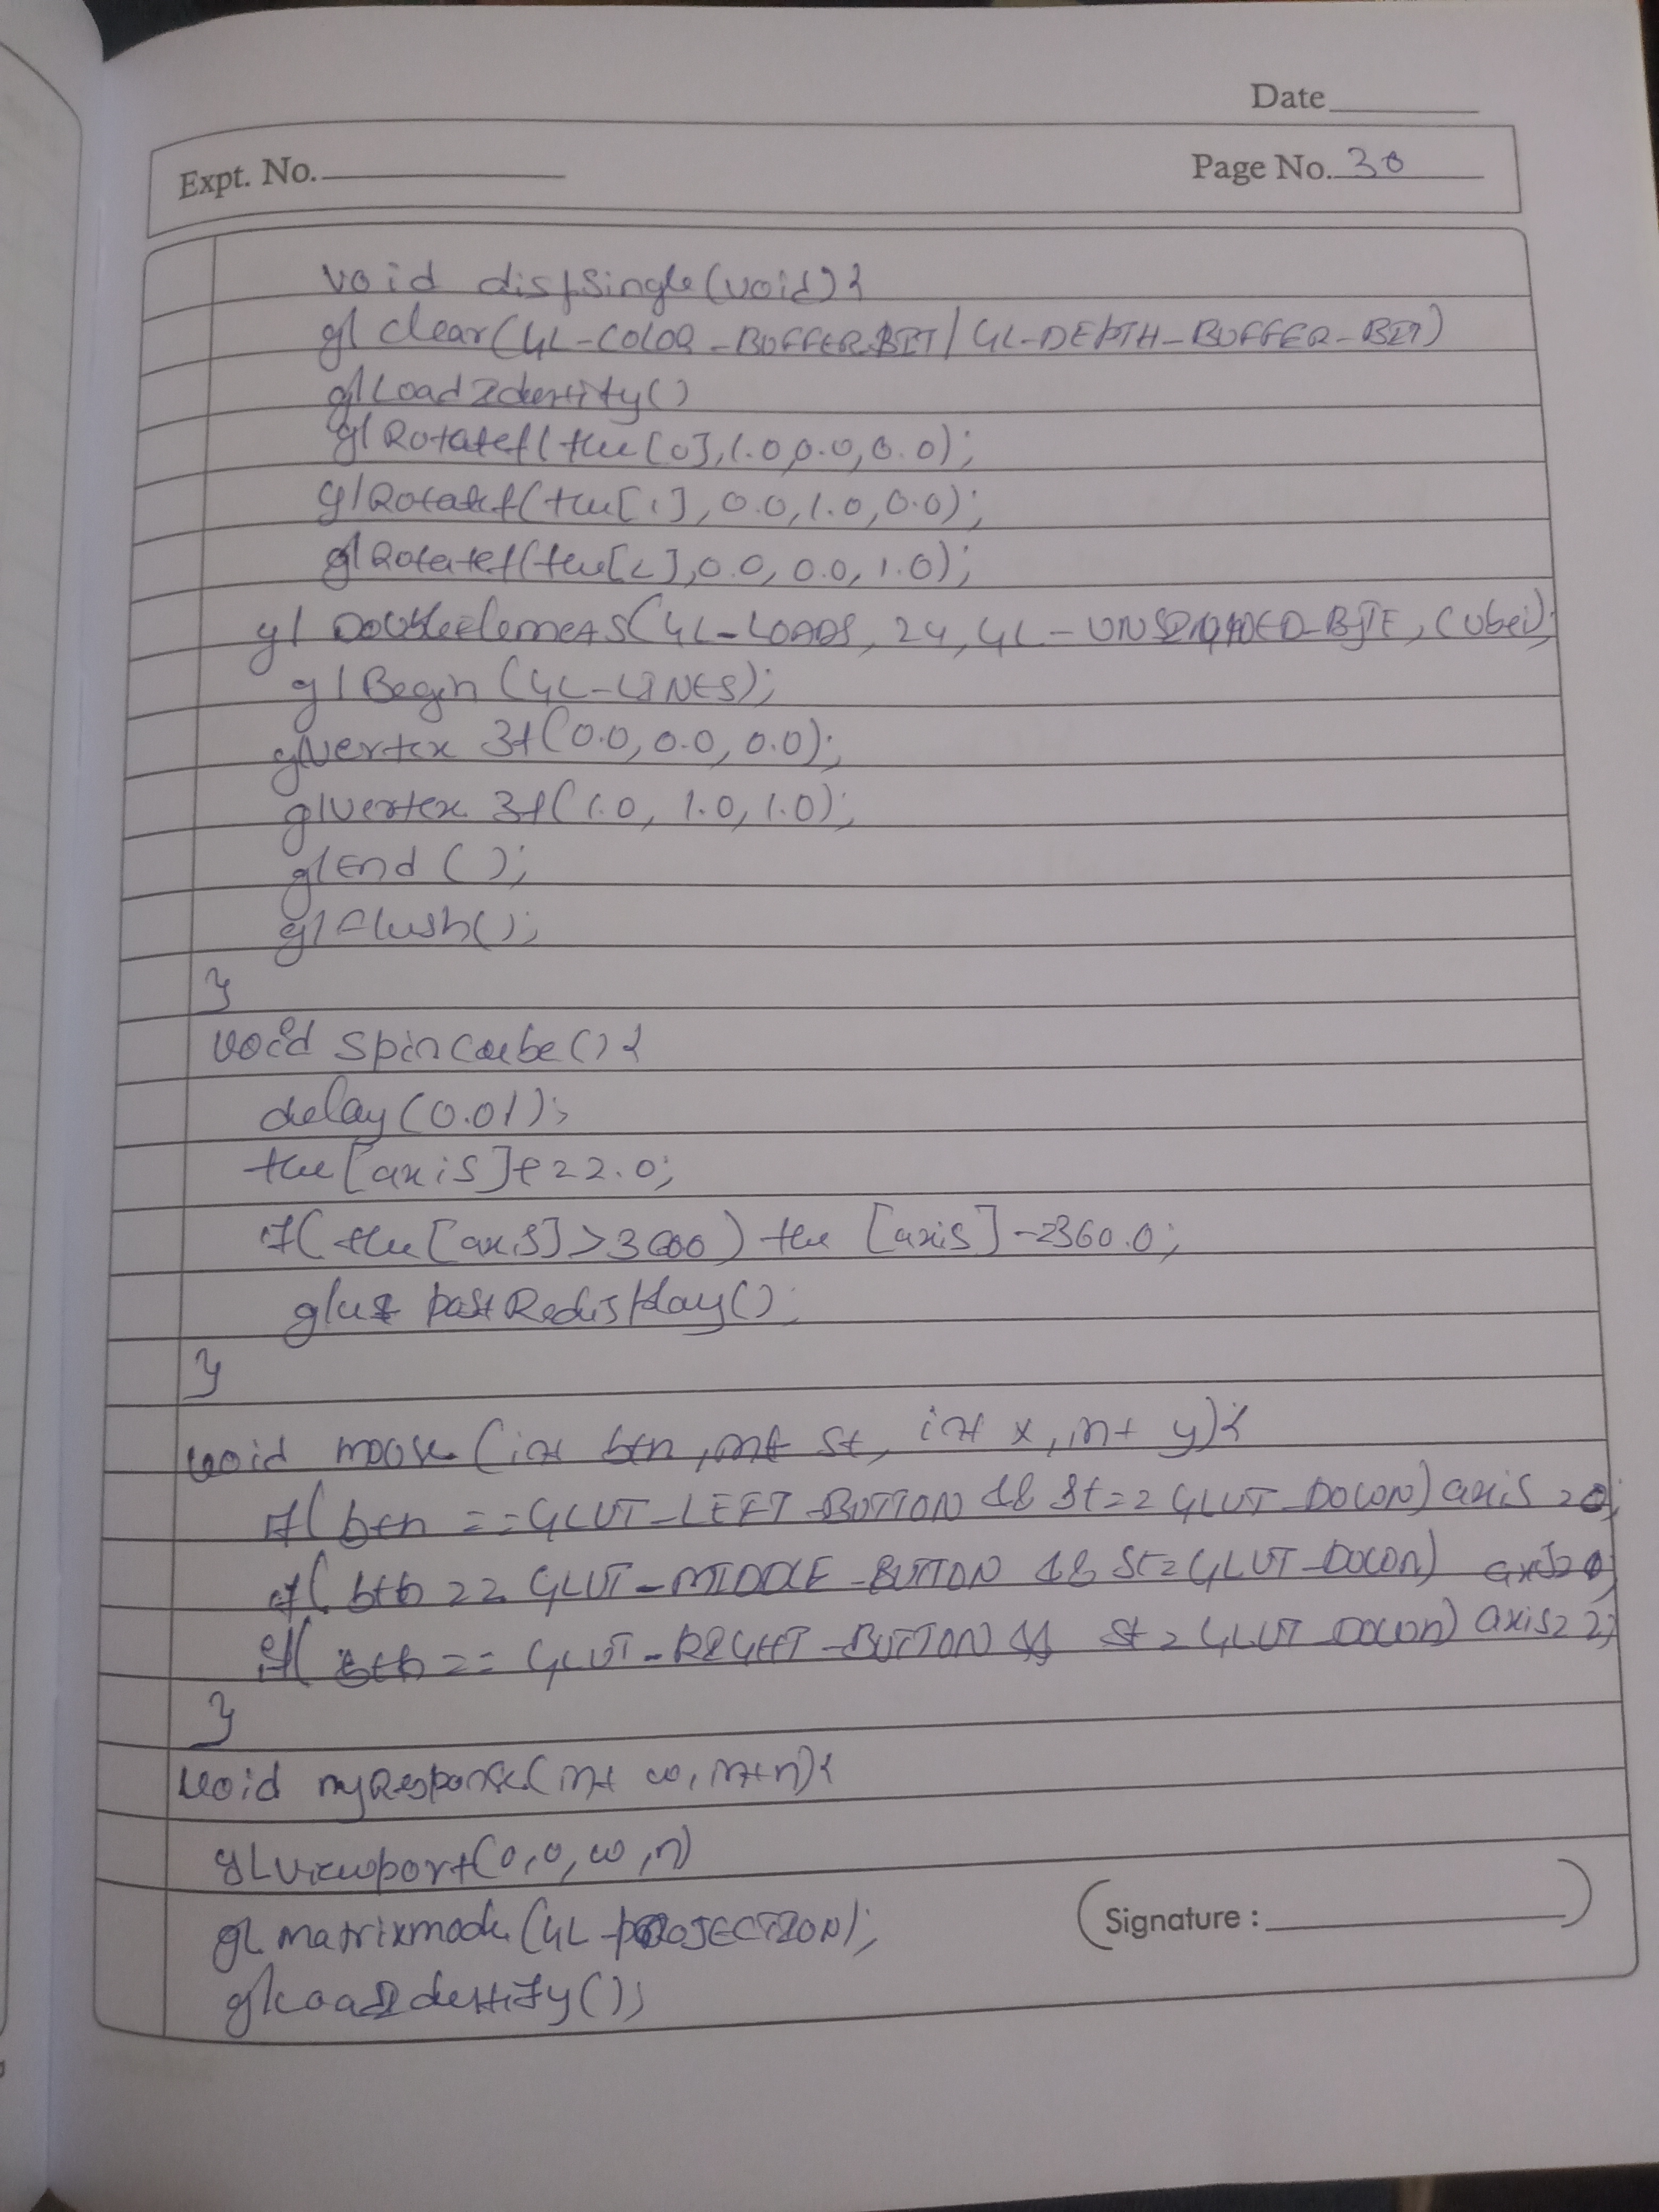 Date
Expt. No.
Page No. 30
void dispSingle(void){
glclear(GL-COLOR-BUFFER-BIT/GL-DEPTH-BUFFER-BIT)
glLoadIdentity()
glRotatef(the[0],1.0,0.0,0.0);
glRotatef(the[1],0.0,1.0,0.0);
glRotatef(the[2],0.0,0.0,1.0);
24, GL-UNSIGNED-BYTE,
glBegin(GL-LINES);
glVertex 3f(0.0,0.0,0.0);
glVertex 3f(1.0, 1.0, 1.0);
glEnd();
glflush();
}
void spincube(){
delay(0.01);
the[axis]+=2.0;
if(the[axis]> the [axis]-=360.0;
glut postRedisplay();
}
void mouse(int btn, int st, int x, int y){
if(btn ==GLUT-LEFT-BUTTON && st==GLUT-DOWN) axis=0;
if(btn == GLUT-MIDDLE-BUTTON && st=GLUT-DOWN)
if(btn == GLUT-RIGHT-BUTTON && st=GLUT-DOWN) axis=2;
}
void myResponse(int w, int n){
glviewport(0,0,w,n)
glmatrixmode(GL-PROJECTION);
glLoadIdentify();
Signature :